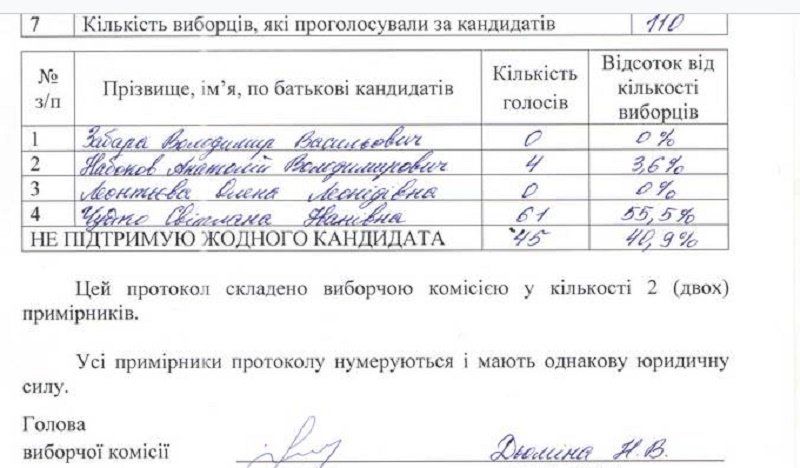 7 Кількість виборців, які проголосували за кандидатів 110
№ з/п Прізвище, ім’я, по батькові кандидатів Кількість голосів Відсоток від кількості виборців
1 Забара Володимир Васильович 0 0%
2 Набоков Анатолій Володимирович 4 3,6%
3 Леонтьєва Олена Леонідівна 0 0%
4 Чудко Світлана Іванівна 61 55,5%
НЕ ПІДТРИМУЮ ЖОДНОГО КАНДИДАТА 45 40,9%
Цей протокол складено виборчою комісією у кількості 2 (двох)
примірників.
Усі примірники протоколу нумеруються і мають однакову юридичну
силу.
Голова
виборчої комісії Дюміна Н.В.